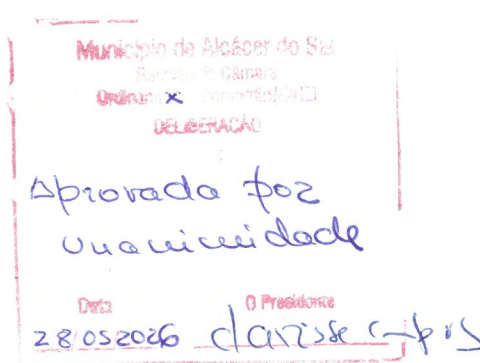 Município de Alcácer do Sal
Reunião de Câmara
Ordinária x Extraordinária
DELIBERAÇÃO
Aprovada por
unanimidade
Data
O Presidente
28 05 2026 Clarisse Campos